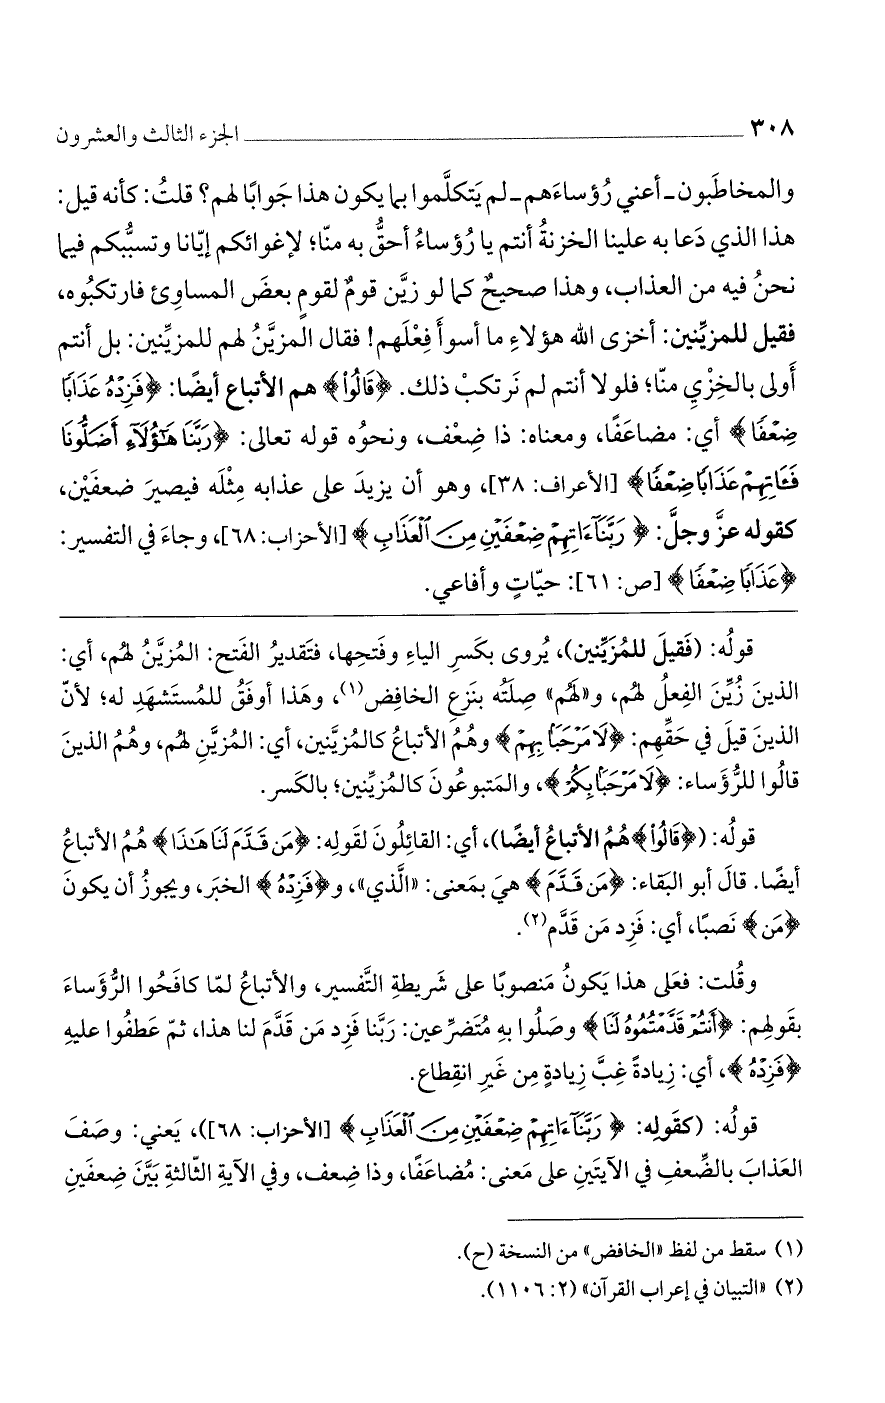 ٣٠٨ ــــــــــــــــ الجزء الثالث والعشرون
والمخاطَبون ـ أعني رُؤساءَهم ـ لم يَتكلَّموا بما يكون هذا جَوابًا لهم؟ قلتُ: كأنه قيل:
هذا الذي دَعا به علينا الخزنةُ أنتم يا رُؤساءُ أحقُّ به منّا؛ لإغوائكم إيّانا وتسبُّبكم فيما
نحنُ فيه من العذاب، وهذا صحيحٌ كما لو زيَّن قومٌ لقومٍ بعضَ المساوِئ فارتكبُوه،
فقيل للمزيِّنين: أخزى الله هؤلاءِ ما أسوأَ فِعْلَهم! فقال المزيَّنُ لهم للمزيِّنين: بل أنتم
أَولى بالخِزْيِ منّا؛ فلولا أنتم لم نَرتكبْ ذلك. ﴿قَالُوا۟﴾ هم الأتباع أيضًا: ﴿فَزِدْهُ عَذَابًا
ضِعْفًا﴾ أي: مضاعَفًا، ومعناه: ذا ضِعْف، ونحوُه قوله تعالى: ﴿رَبَّنَا هَٰٓؤُلَآءِ أَضَلُّونَا
فَـَٔاتِهِمْ عَذَابًا ضِعْفًا﴾ [الأعراف: ٣٨]، وهو أن يزيدَ على عذابه مِثْلَه فيصيرَ ضعفَيْن،
كقوله عزَّ وجلَّ: ﴿رَبَّنَآ ءَاتِهِمْ ضِعْفَيْنِ مِنَ ٱلْعَذَابِ﴾ [الأحزاب: ٦٨]، وجاءَ في التفسير:
﴿عَذَابًا ضِعْفًا﴾ [ص: ٦١]: حيّاتٍ وأفاعي.
قولُه: (فَقيلَ للمُزيِّنين)، يُروى بكَسرِ الياءِ وفَتحِها، فتَقديرُ الفَتح: المُزيَّنُ لهُم، أي:
الذينَ زُيِّنَ الفِعلُ لهُم، و«لهُم» صِلَتُه بنَزعِ الخافِض(١)، وهَذا أوفَقُ للمُستَشهَدِ له؛ لأنّ
الذينَ قيلَ في حَقِّهِم: ﴿لَا مَرْحَبًۢا بِهِمْ﴾ وهُمُ الأتباعُ كالمُزيَّنين، أي: المُزيَّنِ لهُم، وهُمُ الذينَ
قالُوا للرُّؤَساء: ﴿لَا مَرْحَبًۢا بِكُمْ﴾، والمَتبوعُونَ كالمُزيِّنين؛ بالكَسر.
قولُه: (﴿قَالُوا۟﴾ هُمُ الأتباعُ أيضًا)، أي: القائِلُونَ لقَولِه: ﴿مَن قَدَّمَ لَنَا هَٰذَا﴾ هُمُ الأتباعُ
أيضًا. قالَ أبو البَقاء: ﴿مَن قَدَّمَ﴾ هيَ بمَعنى: «الَّذي»، و﴿فَزِدْهُ﴾ الخبَر، ويجوزُ أن يكونَ
﴿مَن﴾ نَصبًا، أي: فَزِد مَن قَدَّم(٢).
وقُلت: فعَلى هذا يَكونُ مَنصوبًا على شَريطةِ التَّفسير، والأتباعُ لمّا كافَحُوا الرُّؤَساءَ
بقَولِهم: ﴿أَنتُمْ قَدَّمْتُمُوهُ لَنَا﴾ وصَلُوا بهِ مُتَضرِّعين: رَبَّنا فَزِد مَن قَدَّمَ لنا هذا، ثمّ عَطفُوا عليهِ
﴿فَزِدْهُ﴾، أي: زِيادةً غِبَّ زِيادةٍ مِن غَيرِ انقِطاع.
قولُه: (كقَولِه: ﴿رَبَّنَآ ءَاتِهِمْ ضِعْفَيْنِ مِنَ ٱلْعَذَابِ﴾ [الأحزاب: ٦٨])، يَعني: وصَفَ
العَذابَ بالضِّعفِ في الآيتَينِ على مَعنى: مُضاعَفًا، وذا ضِعف، وفي الآيةِ الثّالثةِ بَيَّنَ ضِعفَينِ
(١) سقط من لفظ «الخافض» من النسخة (ح).
(٢) «التبيان في إعراب القرآن» (٢: ١١٠٦).